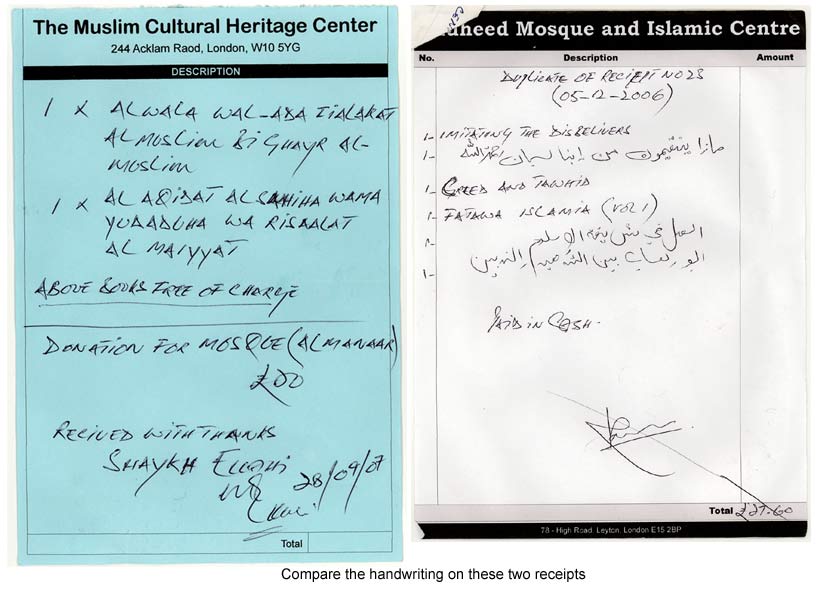 The Muslim Cultural Heritage Center
244 Acklam Raod, London, W10 5YG
DESCRIPTION
1 x ALWALA WAL-ABA
ALMOSLIM BIGHAYR AL-
MOSLIM
1 x AL AQIDAT ALSAHIHA WAMA
YUDADUHA WA RISAALAT
AL MAIYYAT
ABOVE BOOKS FREE OF CHARGE
DONATION FOR MOSQUE (ALMANAAR)
RECIVED WITH THANKS
SHAYKH
28/09/07
Total
uheed Mosque and Islamic Centre
No. Description Amount
DUPLICATE OF RECIEPT NO 25
(05-12-2006)
1- IMITATING THE DISBELIVERS
1- ماذا من
1- CREED AND TAWHID
1- FATAWA ISLAMIA (VOL 1)
1- في
1- بين
PAID IN CASH.
Total £27.60
78 - High Road, Leyton, London E15 2BP
Compare the handwriting on these two receipts